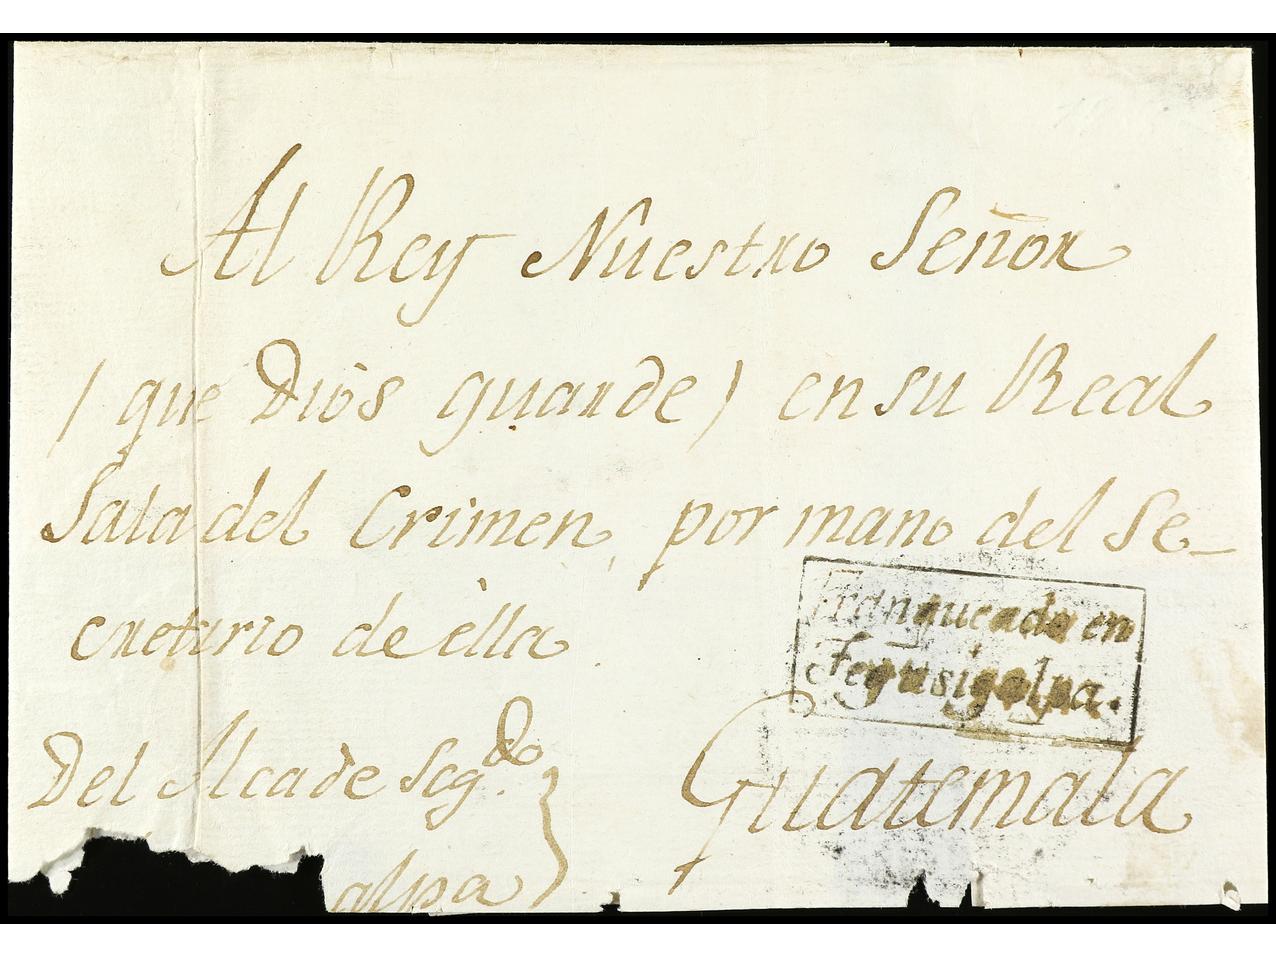 Al Rey Nuestro Señor
(que Dios guarde) en su Real
Sala del Crimen, por mano del Se-
cretario de èlla.
Franqueado en
Tegusigalpa.
Del Alcade Seg.do
Guatemala
alpa